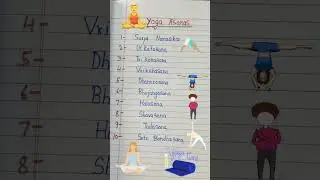 Yoga Asanas
1- Surya Namaskar
2- Utkatasana
3- Trikonasana
4- Vrikshasana
5- Dhanurasana
6- Bhujangasana
7- Halasana
8- Shavasana
9- Tadasana
10- Setu Bandhasana